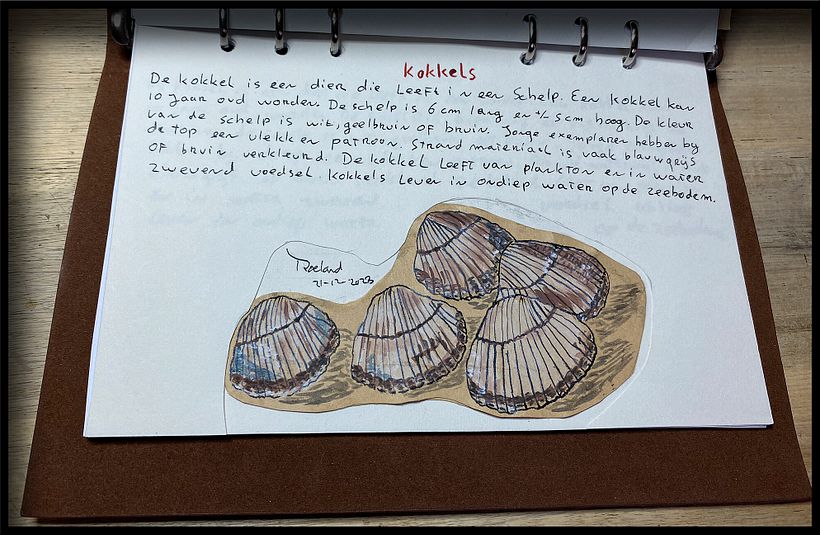 Kokkels
De kokkel is een dier die leeft in een schelp. Een kokkel kan
10 jaar oud worden. De schelp is 6 cm lang en +/- 5 cm hoog. De kleur
van de schelp is wit, geelbruin of bruin. Jonge exemplaren hebben bij
de top een vlekken patroon. Strand materiaal is vaak blauwgrijs
of bruin verkleurd. De kokkel leeft van plankton en in water
zwevend voedsel. Kokkels leven in ondiep water op de zeebodem.
Roeland
21-12-2023